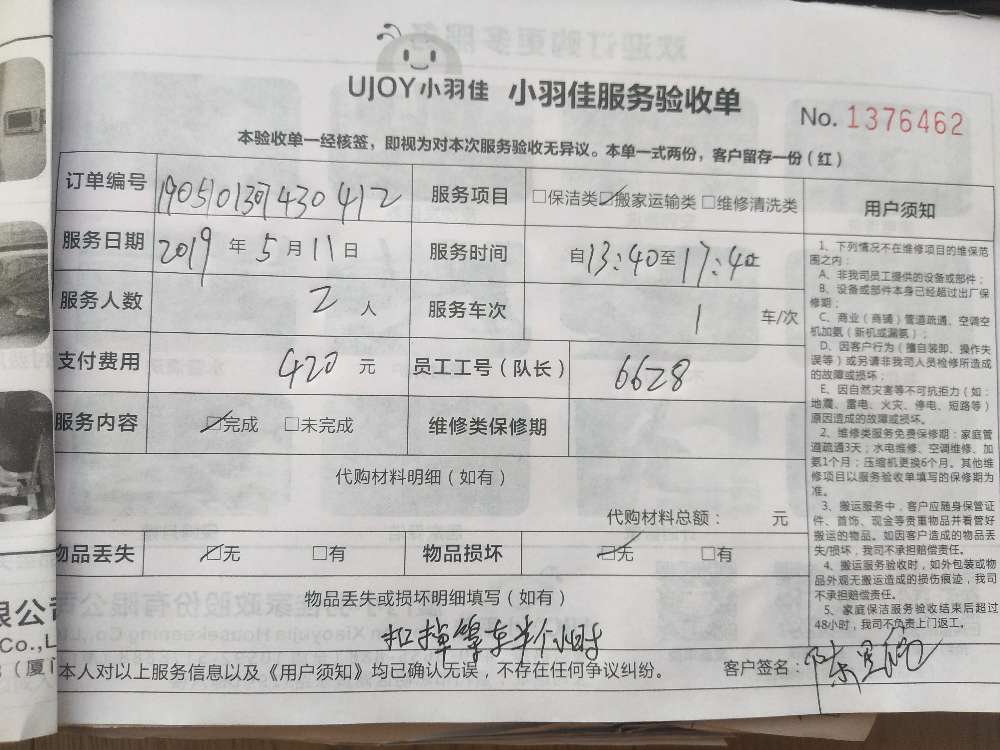 UJOY小羽佳 小羽佳服务验收单
No. 1376462
本验收单一经核签，即视为对本次服务验收无异议。本单一式两份，客户留存一份（红）
订单编号 服务项目 □保洁类☑搬家运输类□维修清洗类
服务日期 2019年5月11日 服务时间 自13:40至17:40止
服务人数 2人 服务车次 1 车/次
支付费用 420元 员工工号（队长） 6628
服务内容 ☑完成 □未完成 维修类保修期
代购材料明细（如有）
代购材料总额： 元
物品丢失 ☑无 □有 物品损坏 ☑无 □有
物品丢失或损坏明细填写（如有）
扣掉等车半个小时
本人对以上服务信息以及《用户须知》均已确认无误，不存在任何争议纠纷。
客户签名：
用户须知
1、下列情况不在维修项目的维保范
围之内：
A、非我司员工提供的设备或部件；
B、设备或部件本身已经超过出厂保
修期；
C、商业（商铺）管道疏通、空调空
机加氨（新机或漏氨）；
D、因客户行为（擅自装卸、操作失
误等）或另请非我司人员检修所造成
的故障或损坏；
E、因自然灾害等不可抗拒力（如：
地震、雷电、火灾、停电、短路等）
原因造成的故障或损坏。
2、维修类服务免费保修期：家庭管
道疏通3天；水电维修、空调维修、加
氨1个月；压缩机更换6个月。其他维
修项目以服务验收单填写的保修期为
准。
3、搬运服务中，客户应随身保管证
件、首饰、现金等贵重物品并看管好
搬运的物品。如因客户造成的物品丢
失/损坏，我司不承担赔偿责任。
4、搬运服务验收时，如外包装或物
品外观无搬运造成的损伤痕迹，我司
不承担赔偿责任。
5、家庭保洁服务验收结束后超过
48小时，我司不负责上门返工。
限公司
Co.,L
（厦门